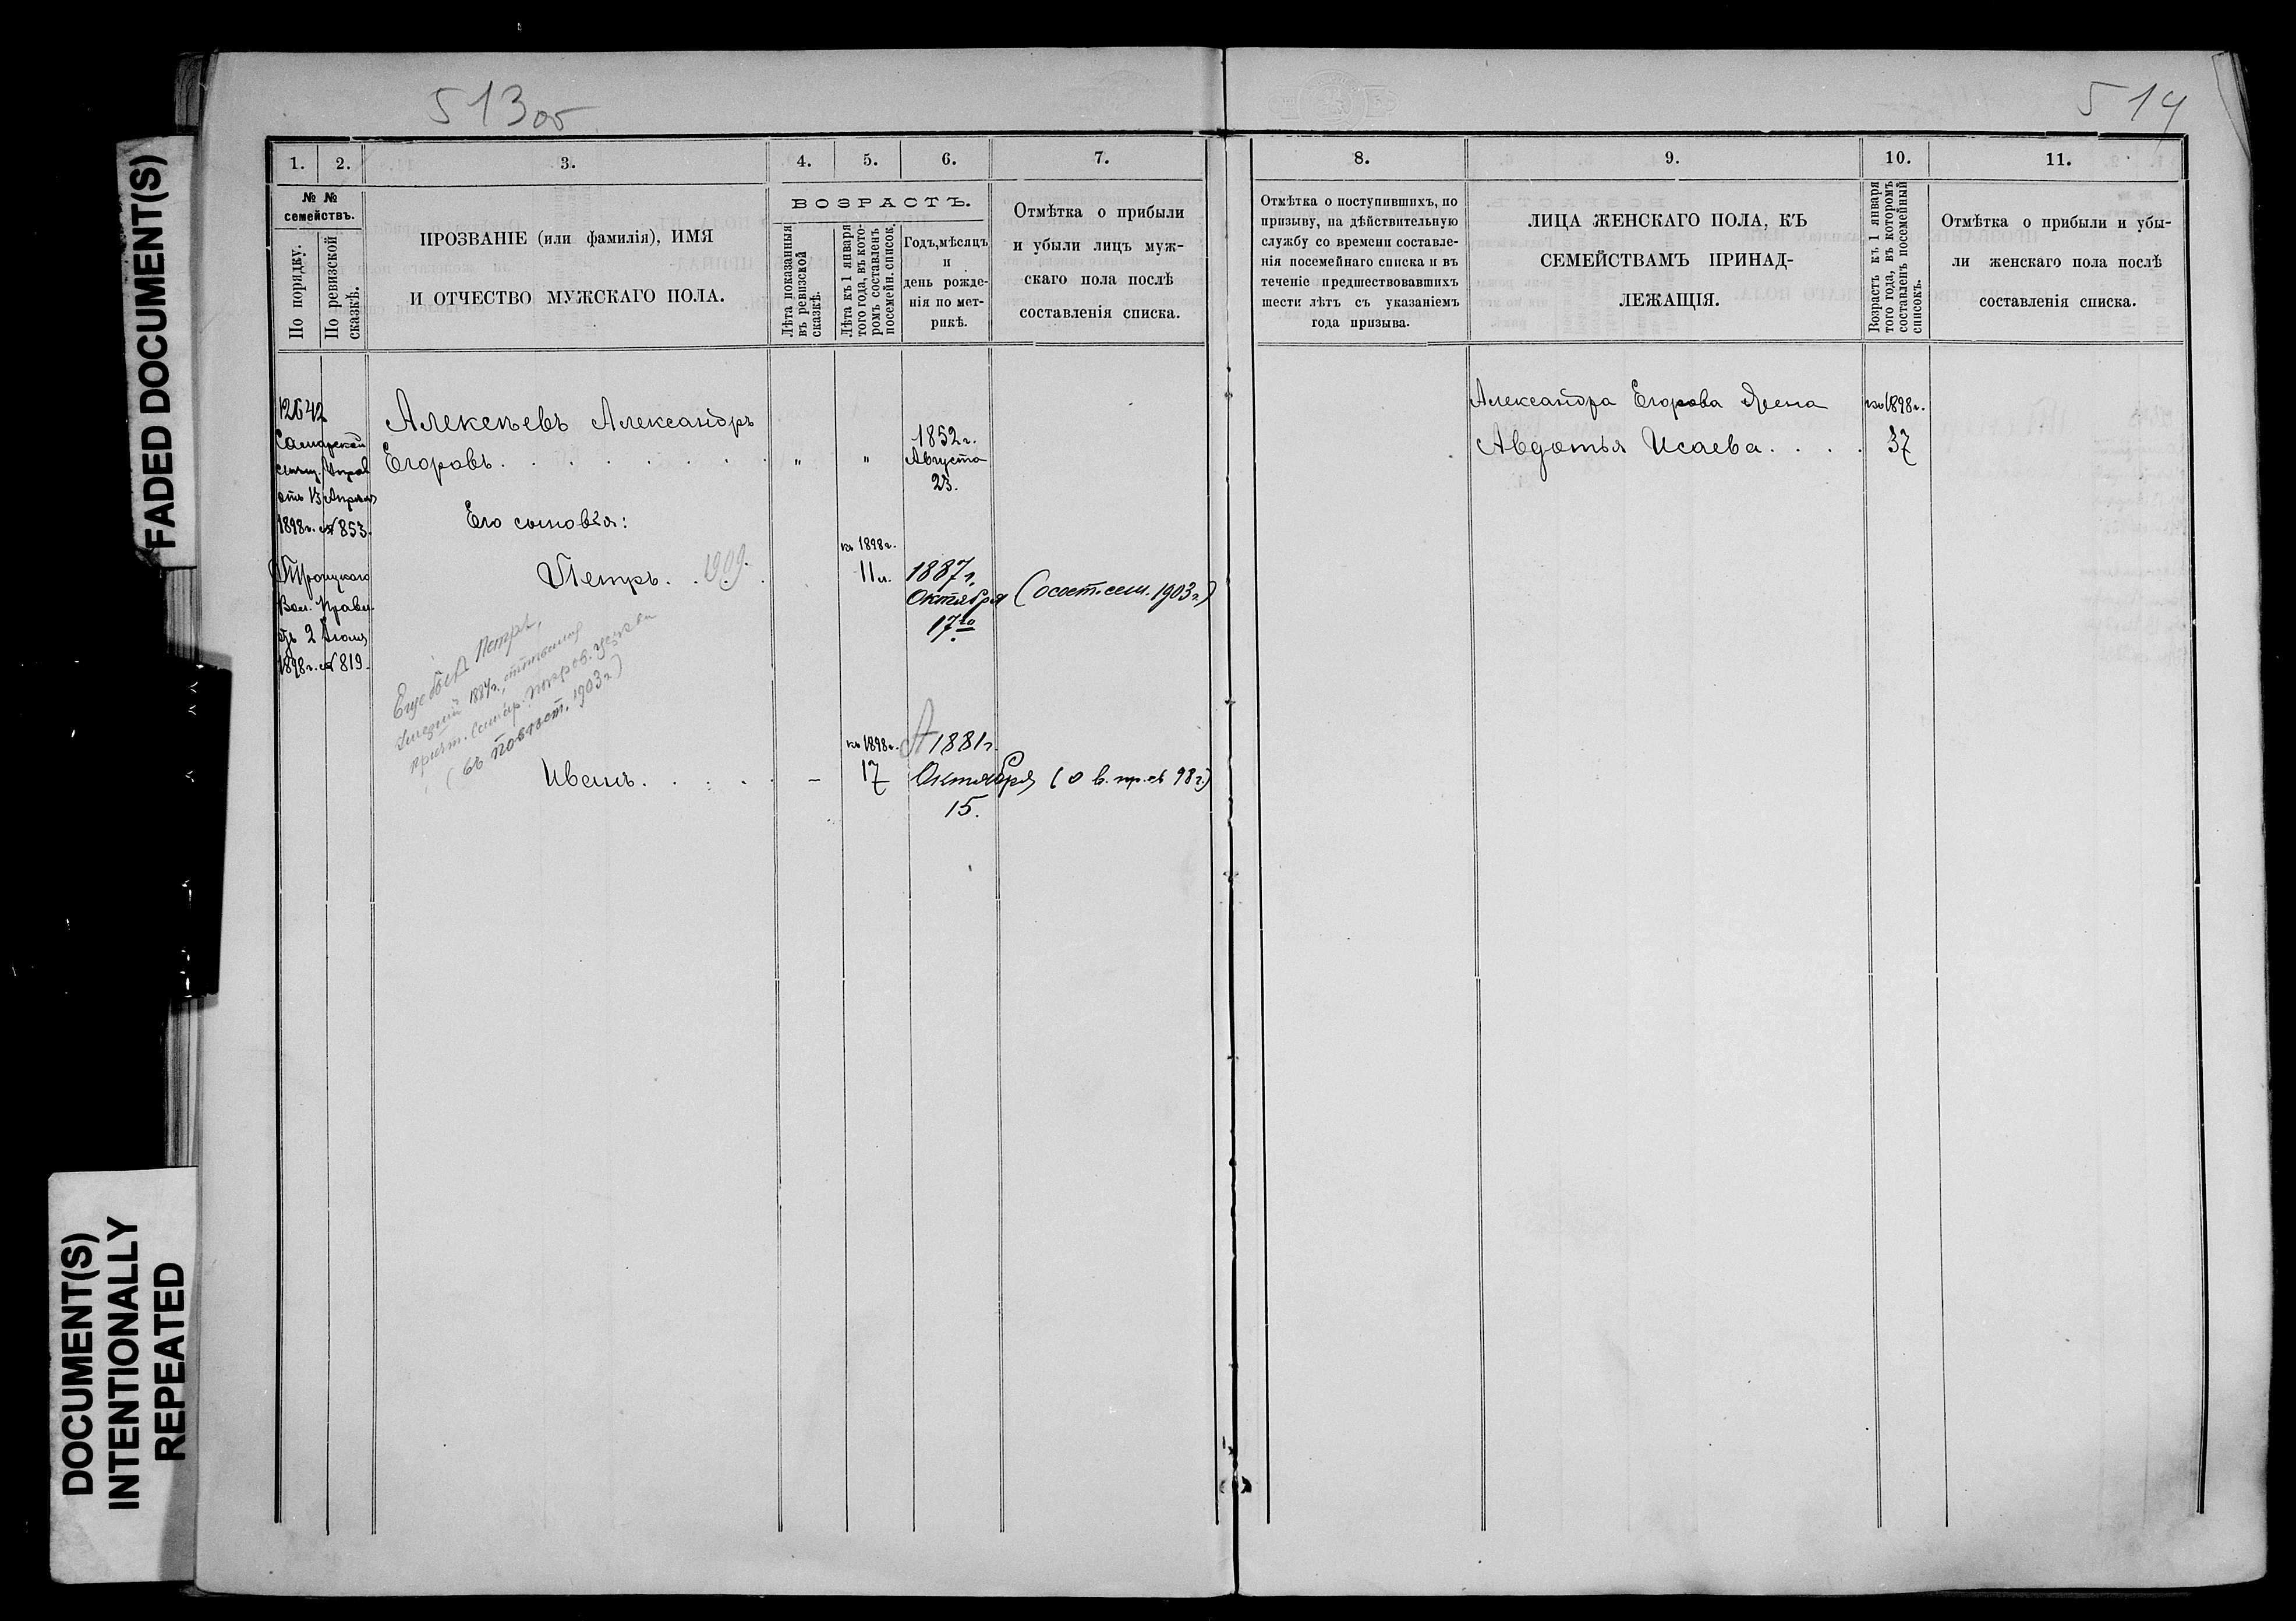 FADED DOCUMENT(S)
DOCUMENT(S)
INTENTIONALLY
REPEATED
513 об
1. 2. 3. 4. 5. 6. 7.
№ №
семействъ.
По порядку.
По ревизской
сказкѣ.
ПРОЗВАНІЕ (или фамилія), ИМЯ
И ОТЧЕСТВО МУЖСКАГО ПОЛА.
ВОЗРАСТЪ.
Лѣта показанныя
въ ревизской
сказкѣ.
Лѣта къ 1 января
того года, въ кото-
ромъ составленъ
посемейн. списокъ,
Годъ, мѣсяцъ
и
день рожде-
нія по мет-
рикѣ.
Отмѣтка о прибыли
и убыли лицъ муж-
скаго пола послѣ
составленія списка.
12642
Самарской
от 13 Апрѣля
1898г. № 853.
Троицкаго
Вол. Правл.
2 Іюля
1898г. № 819.
Алексѣевъ Александръ
Егоровъ
" "
1852 г.
Августа
23.
Его сыновья:
Петръ. 1909.
къ 1898г.
11 л.
1887 г.
Октября
17го
1903 г.)
Еще былъ Петръ,
1884г.,
1903 г.)
Иванъ.
къ 1898г.
17
А 1881г.
Октября
15.
98 г.)
514
8. 9. 10. 11.
Отмѣтка о поступившихъ, по
призыву, на дѣйствительную
службу со времени составле-
нія посемейнаго списка и въ
теченіе предшествовавшихъ
шести лѣтъ съ указаніемъ
года призыва.
ЛИЦА ЖЕНСКАГО ПОЛА, КЪ
СЕМЕЙСТВАМЪ ПРИНАД-
ЛЕЖАЩІЯ.
Возрастъ къ 1 января
того года, въ которомъ
составленъ посемейный
списокъ.
Отмѣтка о прибыли и убы-
ли женскаго пола послѣ
составленія списка.
Александра Егорова жена
Авдотья Исаева
къ 1898г.
37